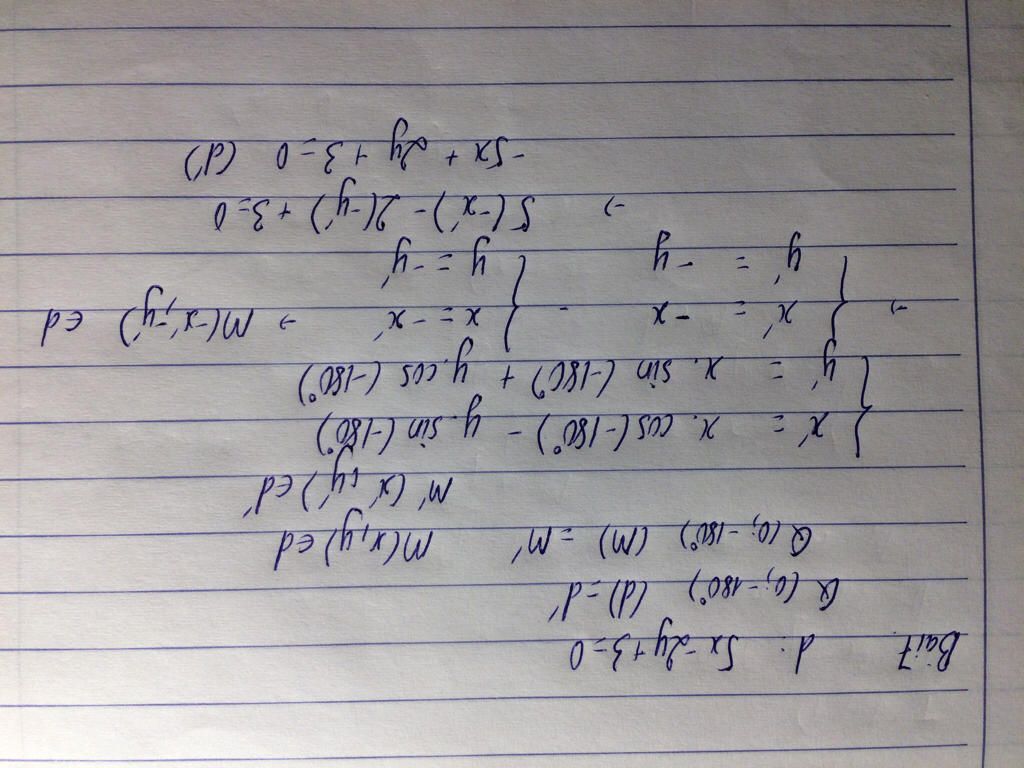 Bài 7. d: 5x-2y+3=0
Q(O;-180°) (d)=d'
Q(O;-180°) (M) = M' M(x,y) ∈ d
M'(x',y') ∈ d'
{ x' = x. cos(-180°) - y. sin(-180°)
y' = x. sin(-180°) + y. cos(-180°)
→ { x' = -x - { x = -x' → M(-x',-y') ∈ d
y' = -y y = -y'
→ 5(-x') - 2(-y') + 3=0
-5x + 2y + 3=0 (d')